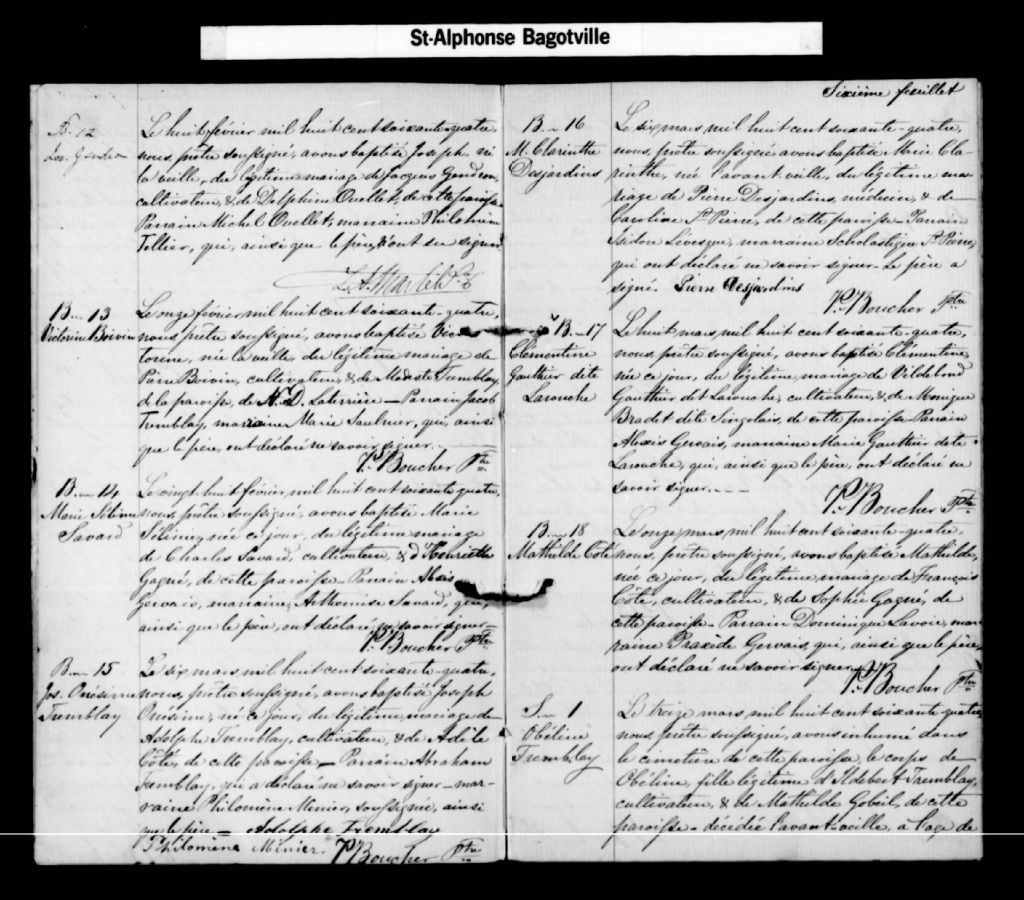 St-Alphonse Bagotville
B. 12
Jos. Gendron
Le huit février mil huit cent soixante-quatre,
nous, prêtre soussigné, avons baptisé Joseph, né
la veille, du légitime mariage de Jacques Gendron,
cultivateur, & de Delphine Ouellet, de cette paroisse
Parrain Michel Ouellet, marraine Philomène
Tellier, qui, ainsi que le père, n'ont su signer
L. A. Martel Ptre
B... 13
Victorine Boivin
Le onze février mil huit cent soixante-quatre,
nous, prêtre soussigné, avons baptisé Vic-
torine, née la veille, du légitime mariage de
Pierre Boivin, cultivateur, & de Modeste Tremblay,
de la paroisse de N. D. Laterrière — Parrain Jacob
Tremblay, marraine Marie Saulnier, qui, ainsi
que le père, ont déclaré ne savoir signer.
P. Boucher Ptre
B... 14
Marie Séline
Savard
Le vingt huit février, mil huit cent soixante quatre,
nous, prêtre soussigné, avons baptisé Marie
Séline, née ce jour, du légitime mariage
de Charles Savard, cultivateur, & d'Henriette
Gagné, de cette paroisse — Parrain Alexis
Gervais, marraine Arthemise Savard, qui,
ainsi que le père, ont déclaré ne savoir signer —
P. Boucher Ptre
B... 15
Jos. Onésime
Tremblay
Le six mars mil huit cent soixante-quatre,
nous, prêtre soussigné, avons baptisé Joseph
Onésime, né ce jour, du légitime mariage de
Adolphe Tremblay, cultivateur, & de Adèle
Côté, de cette paroisse — Parrain Abraham
Tremblay, qui a déclaré ne savoir signer — mar-
raine Philomène Minier, soussignée, ainsi
que le père — Adolphe Tremblay
Philomène Minier. P. Boucher Ptre
Sixième feuillet
B... 16
M. Clarinthe
Desjardins
Le six mars, mil huit cent soixante-quatre,
nous, prêtre soussigné, avons baptisé Marie Cla-
rinthe, née l'avant veille, du légitime ma-
riage de Pierre Desjardins, médecin, & de
Caroline St Pierre, de cette paroisse — Parrain
Isidore Lévesque, marraine Scholastique St Pierre,
qui ont déclaré ne savoir signer — Le père a
signé. Pierre Desjardins
P. Boucher Ptre
B... 17
Clémentine
Gauthier dite
Larouche
Le huit mars, mil huit cent soixante-quatre,
nous, prêtre soussigné, avons baptisé Clémentine,
née ce jour, du légitime mariage de Vildebond
Gauthier dit Larouche, cultivateur, & de Monique
Bradet dite Singelais, de cette paroisse Parrain
Alexis Gervais, marraine Marie Gauthier dite
Larouche, qui, ainsi que le père, ont déclaré ne
savoir signer. - - -
P. Boucher Ptre
B... 18
Mathilde Côté
Le onze mars, mil huit cent soixante-quatre,
nous, prêtre soussigné, avons baptisé Mathilde,
née ce jour, du légitime mariage de François
Côté, cultivateur, & de Sophie Gagné, de
cette paroisse — Parrain Dominique Lavoie, mar-
raine Praxède Gervais, qui, ainsi que le père,
ont déclaré ne savoir signer.
P. Boucher Ptre
S... 1
Obéline
Tremblay
Le treize mars, mil huit cent soixante-quatre,
nous, prêtre soussigné, avons inhumé dans
le cimetière de cette paroisse, le corps de
Obéline, fille légitime d'Ildebert Tremblay,
cultivateur, & de Mathilde Gobeil, de cette
paroisse — décédée l'avant-veille, à l'age de